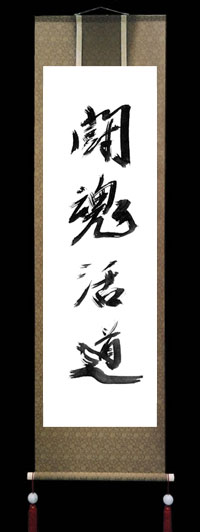 闘魂活道